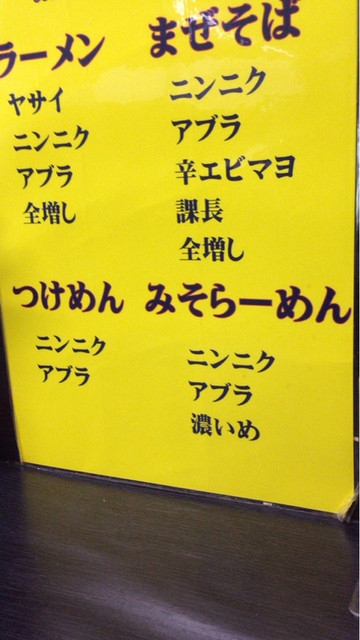 ラーメン
ヤサイ
ニンニク
アブラ
全増し
まぜそば
ニンニク
アブラ
辛エビマヨ
課長
全増し
つけめん
ニンニク
アブラ
みそらーめん
ニンニク
アブラ
濃いめ